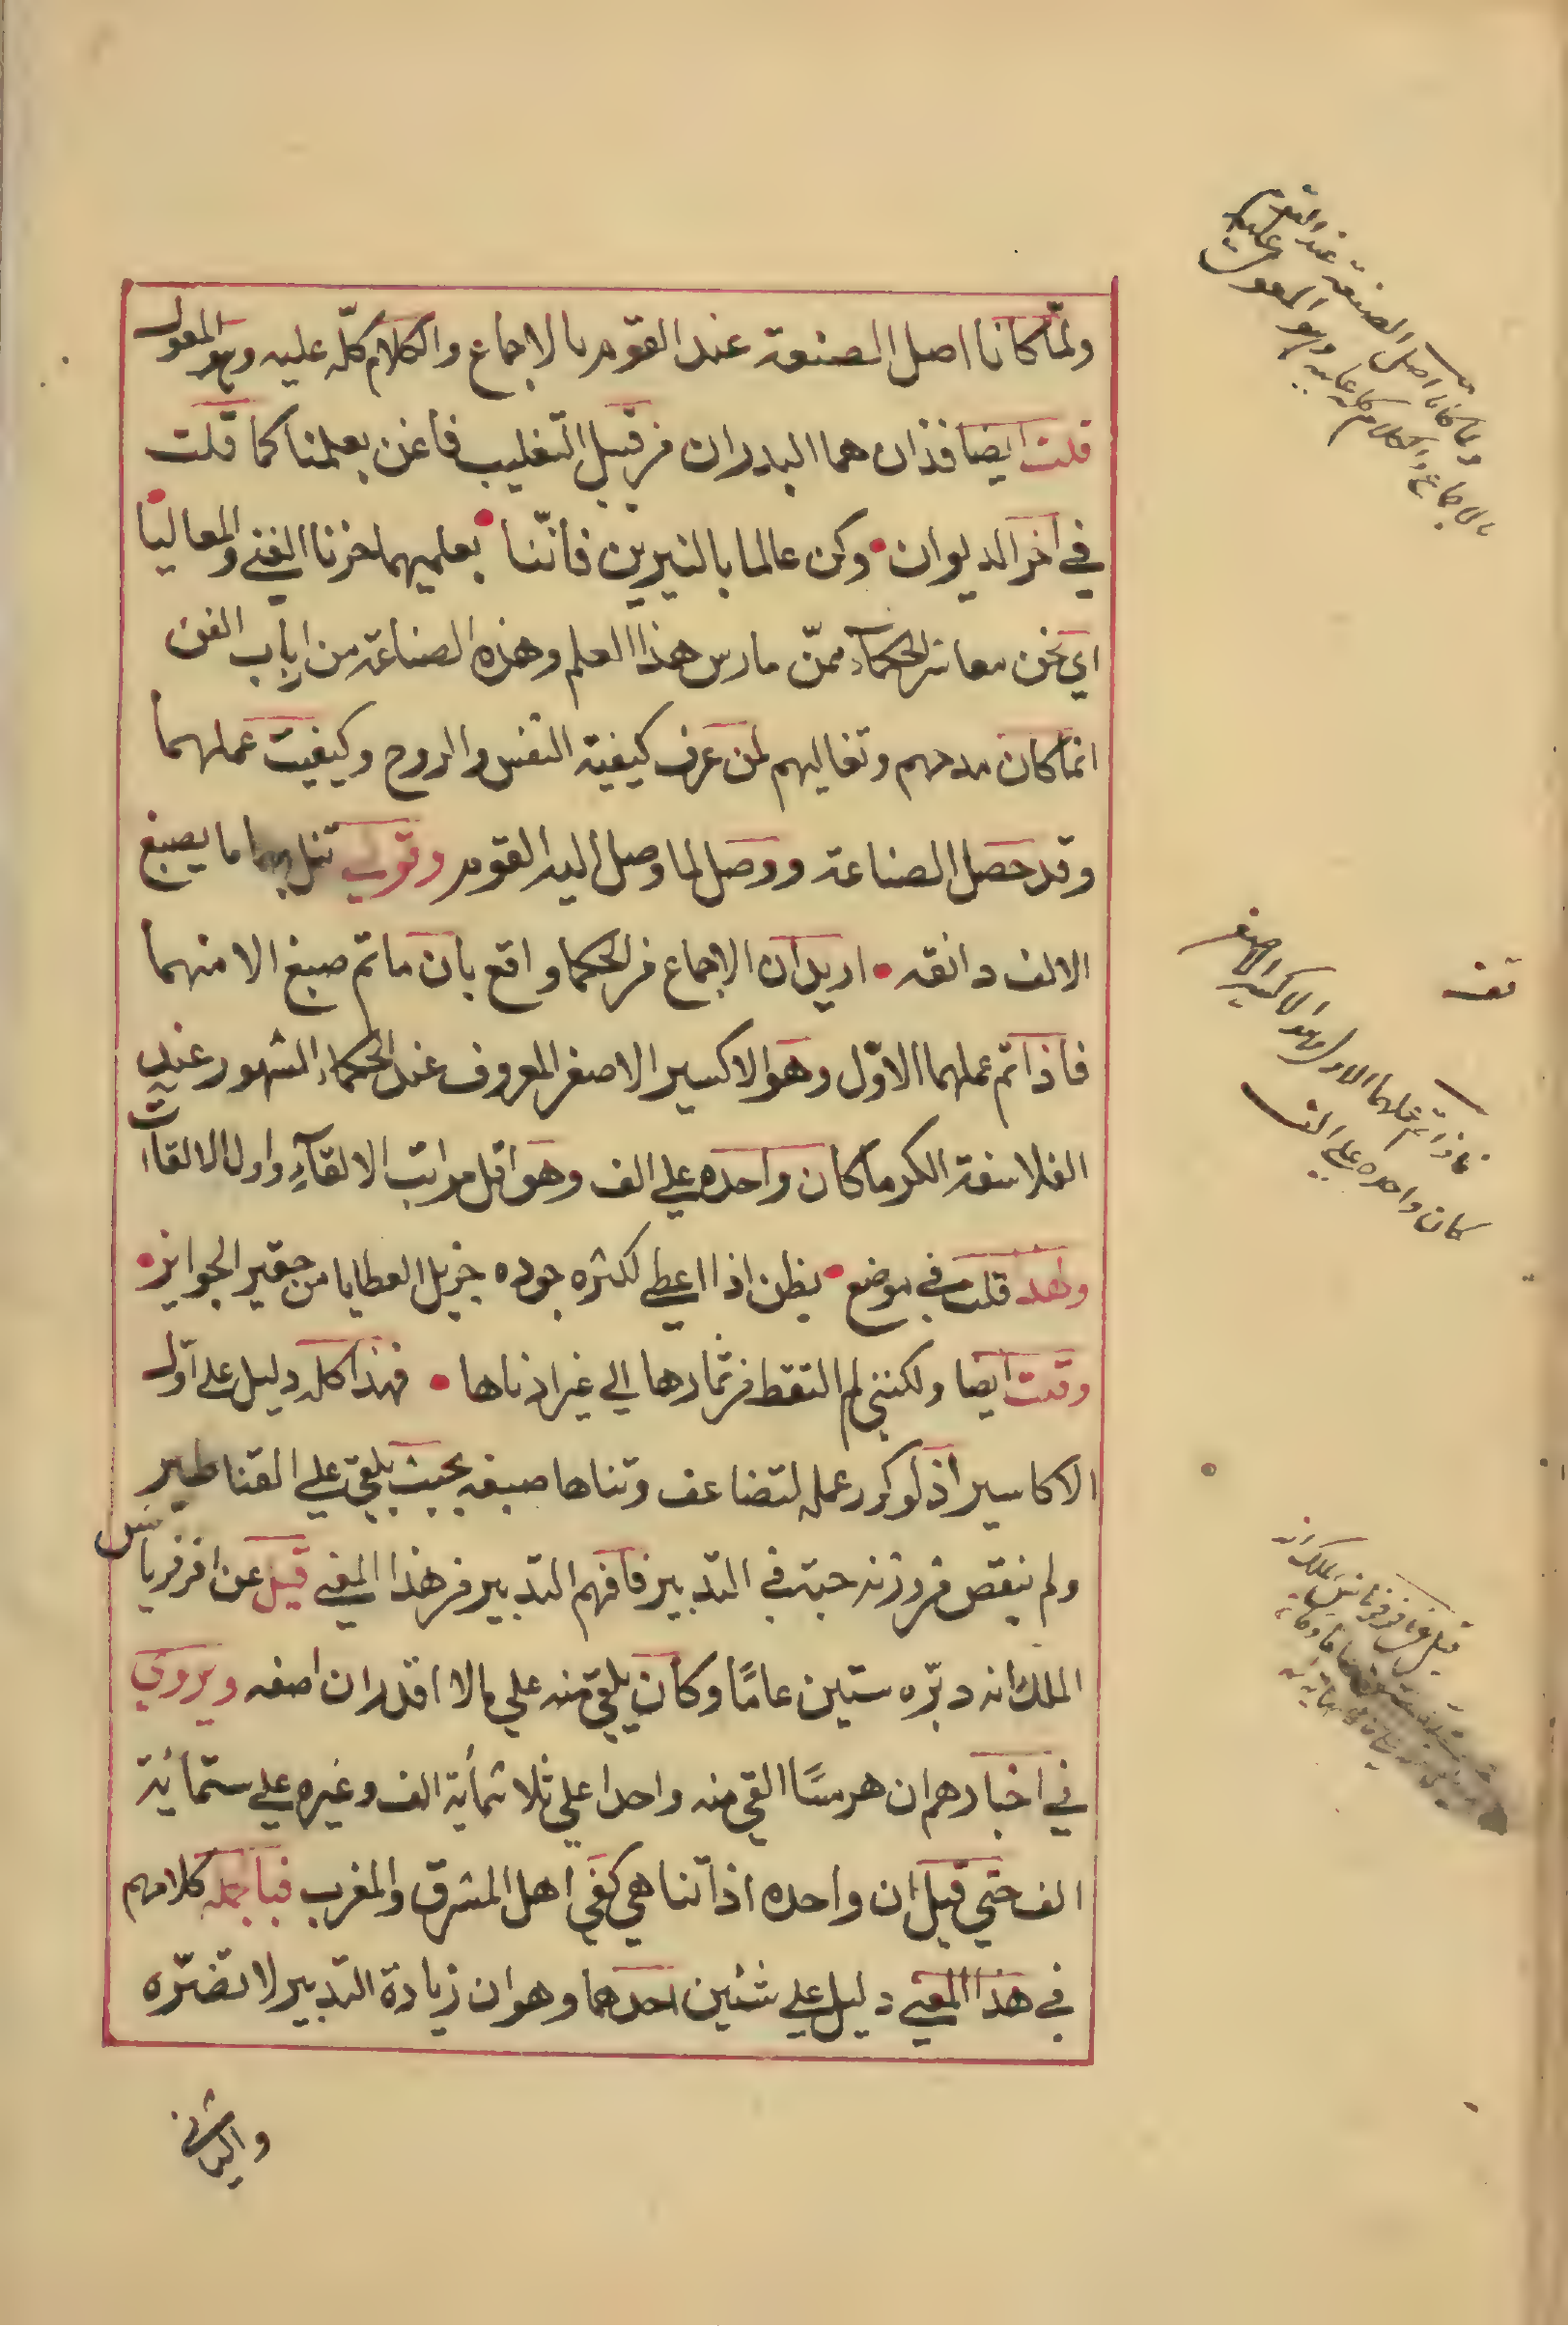 ولمّا كانا اصل الصنعة عند القوم بالاجماع والكلام كلّه عليه وهو المعول
قلت ايضا فذان هما البدران من قبيل التغليب فاغن بعلمنا كما قلت
في اخر الديوان • وكن عالما بالنيرين فانّنا • بعلميهما حزنا الغنى والمعاليا •
اي نحن معاشر الحكماء ممّن مارس هذا العلم وهذه الصناعة من ارباب الفن
انما كان مدحهم وتغاليهم لمن عرف كيفية النفس والروح وكيفيت عملهما
وقد حصل الصناعة ووصل لما وصل اليه القوم وقولي تنل بهما ما يصبغ
الالف دانقه • اريد ان الاجماع من الحكما واقع بان ما تم صبغ الا منهما
فاذا تم عملهما الاوّل وهو الاكسير الاصغر المعروف عند الحكماء الشهور عند
الفلاسفة الكرما كان واحده علي الف وهو اقل مراتب الالقآء واول الالقاآت
ولهذا قلت في موضع • يظن اذا اعطي لكثره جوده جزيل العطايا من حقير الجوايز •
وقلت ايضا ولكنني لم التقط من ثمارها الي غير ادناها • فهذا كله دليل علي اوّل
الاكاسير اذ لو كرر عمله لتضاعف وتناها صبغه بحيث يلقي علي القناطير
ولم ينقص من وزنه حبة في التدبير فافهم التدبير من هذا المعني قيل عن افرفرياس
الملك انه دبّره ستين عامًا وكان يلقي منه علي ما لا اقدر ان اصفه ويروي
في اخبارهم ان هرمسًا القي منه واحدا علي ثلاثمأية الف وغيره علي ستمأية
الف حتي قيل ان واحده اذا تناهي كفي اهل المشرق والمغرب فبالجملة كلامهم
في هذا المعني دليل علي شئين احدهما وهو ان زيادة التدبير لا تضرّه
والثاني
ولما كانا اصل الصنعة عند القوم
بالاجماع والكلام كله عليه وهو المعول عليه
قف
فاذا تم عملهما الاول وهو الاكسير الاصغر
كان واحده علي الف
قيل عن افرفرياس الملك انه